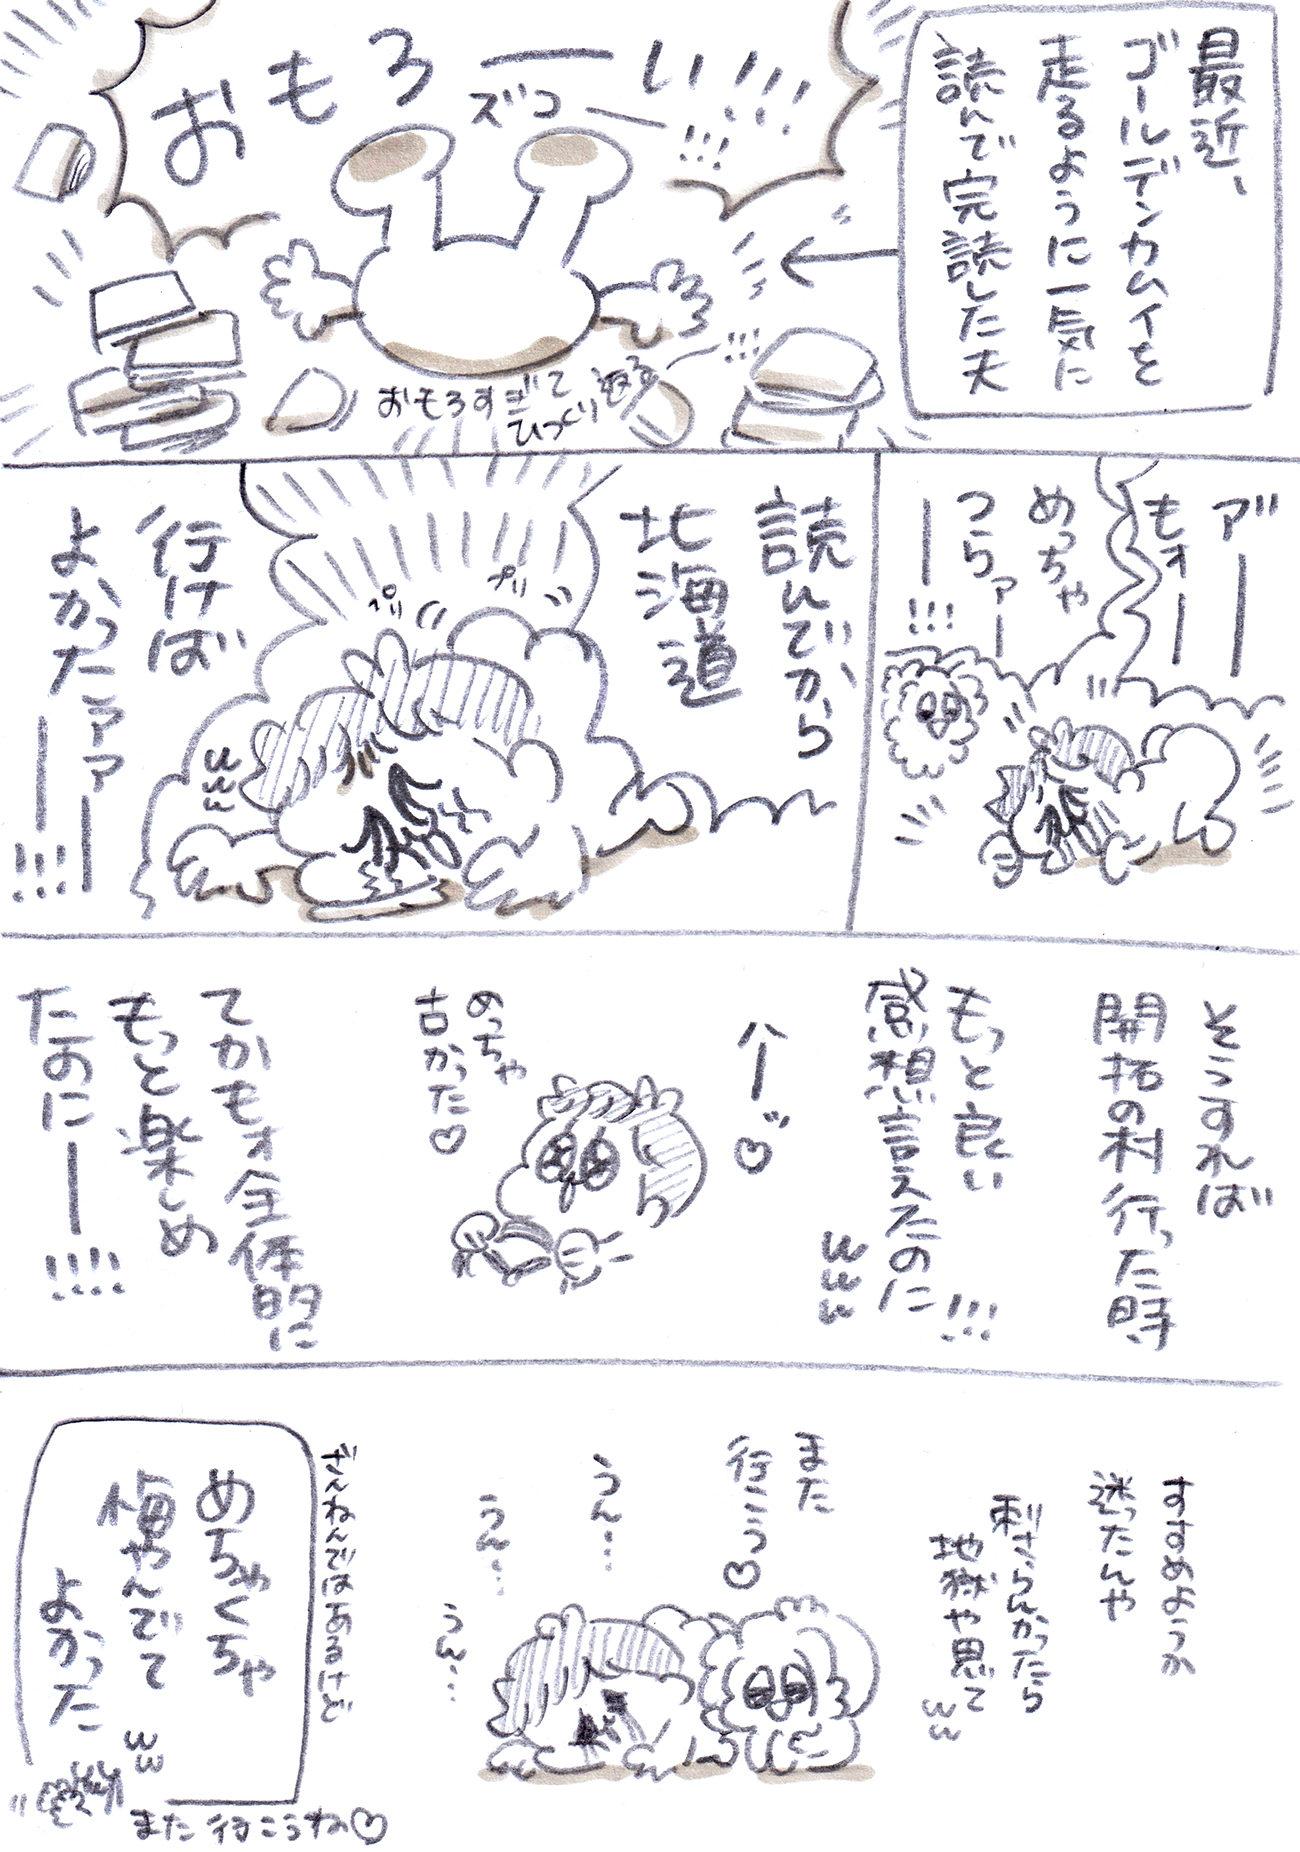 最近、
ゴールデンカムイを
走るように一気に
読んで完読した夫
おもろーい!!!
ズコーッ!!!
おもろすぎて
ひっくり返るー!!!
ア゛ーー
もォーー
めっちゃ
つらァー
ー!!!
読んでから
北海道
プリ
ペリ
行けば
よかったァァァー
ー!!!
www
そうすれば
開拓の村行った時
もっと良い
感想言えたのに!!!
www
ハーッ♡
めっちゃ
古かった♡
てかもォ全体的に
もっと楽しめ
たのにー!!!!
すすめようか
迷ったんや
刺さらんかったら
地獄や思て
ww
また
行こう♡
うん…
うん…
うん…
ざんねんではあるけど
めちゃくちゃ
悔やんでて
ww
よかった
また行こうね♡